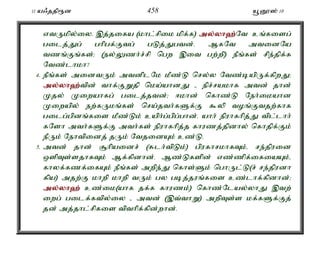 11 யஃததிரூன 458 யூனுஸ் 10
எவருமில்லை. இத்தகைய (மாட்சிமை மிக்க) அல்லாஹ்வே உங்களைப்
படைத்துப் பரிபக்குவப் படுத்துபவன். ஆகவே அவனையே
வணங்குங்கள்; (நல்லுணர்ச்சி பெற இவை பற்றி) நீங்கள் சிந்திக்க
வேண்டாமா?
4. நீங்கள் அனைவரும் அவனிடமே மீண்டு செல்ல வேண்டியிருக்கிறது.
அல்லாஹ்வின் வாக்குறுதி மெய்யானது. நிச்சயமாக அவன் தான்
முதல் முறையாகப் படைத்தவன்; ஈமான் கொண்டு நேர்மையான
முறையில் நற்கருமங்கள் செய்தவர்களுக்கு கூலி வழங்குவதற்காக
படைப்பினங்களை மீண்டும் உயிர்ப்பிப்பான். யார் நிராகரித்து விட்டார்
களோ அவர்களுக்கு அவர்கள் நிராகரித்த காரணத்தினால் கொதிக்கும்
நீரும் நோவினைத் தரும் வேதனையும் உண்டு.
5. அவன் தான் சூரியனைச் (சுடர்விடும்) பிரகாசமாகவும், சந்திரனை
ஒளிவுள்ளதாகவும் ஆக்கினான். ஆண்டுகளின் எண்ணிக்கையையும்,
காலக்கணக்கையும் நீங்கள் அறிந்து கொள்ளும் பொருட்டு(ச் சந்திரனா
கிய) அதற்கு மாறி மாறி வரும் பல படித்தரங்களை உண்டாக்கினான்;
அல்லாஹ் உண்மை(யாக தக்க காரணம்) கொண்டேயல்லாது இவற்
றைப் படைக்கவில்லை - அவன் (இவ்வாறு) அறிவுள்ள மக்களுக்குத்
தன் அத்தாட்சிகளை விவரிக்கின்றான்.